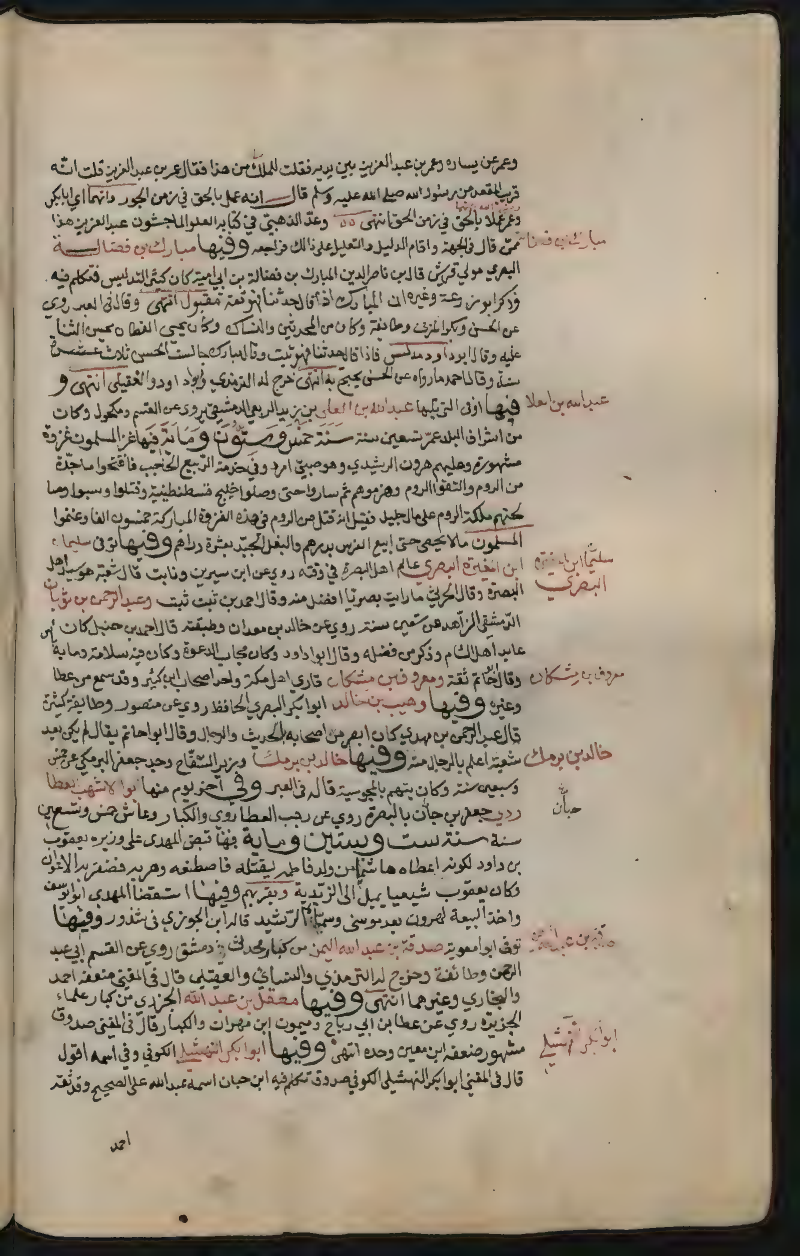 وعمر عن يساره وعمر بن عبد العزيز بين يديه فقلت للملك من هذا فقال عمر بن عبد العزيز قلت انه
قريب المقعد من رسول الله صلى الله عليه وسلم قال انه عمل بالحق في زمن الجور وانهما اي ابا بكر
وعمر عملا بالحق في زمن الحق انتهى وعد الذهبي في كتابه العلو الماجشون عبد العزيز هذا
ممن قال في الجهة واقام الدليل والتعليل على ذالك فراجعه وفيها مبارك بن فضالة
مبارك بن فضا
البصري مولي قريش قال بن ناصر الدين المبارك بن فضالة بن ابي امية كان كثير التدليس فتكلم فيه
وذكر ابو زرعة وغيره ان المبارك اذا قال حدثنا فهو ثقة مقبول انتهى وقال في العبر روي
عن الحسن وبكر المزني وطائفة وكان من المحدثين والنساك وكان يحيى القطان يحسن الثنا
عليه وقال ابو داود مدلس فاذا قال حدثنا فهو ثبت وقال مبارك جالست الحسن ثلاث عشرة
سنة وقال احمد ما رواه عن الحسن يحتج به انتهى خرج له الترمذي وابو داود والعقيلي انتهى و
فيها او في التي تليها عبد الله بن العلا بن زيد الربعي الدمشقي يروي عن القسم ومكحول وكان
عبد الله بن العلا
من اشراف البلد عمر تسعين سنة سنة خمس وستون وماية فيها غزا المسلمون غزوة
مشهورة وعليهم هرون الرشيدي وهو صبي امرد وفي خدمته الربيع الحاجب فافتتحوا ماجدة
من الروم والتقوا الروم وهزموهم ثم ساروا حتى وصلوا خليج قسطنطينية وقتلوا وسبوا وصا
لحتهم ملكة الروم على مال جليد فقيل انه قتل من الروم في هذه الغزوة المباركة خمسون الفا وغنموا
المسلمون ما لا يحصى حتى ابيع الفرس بدرهم والبغل الجيد بعشرة دراهم وفيها توفى سليمان
ابن المغيرة البصري عالم اهل البصرة في وقته روي عن ابن سيرين وثابت قال شعبة هو سيد اهل
سليمان ابن المغيرة
البصري
البصرة وقال الخريبي ما رايت بصريا افضل منه وقال احمد بن ثبت ثبت وعبد الرحمن بن ثوبان
الدمشقي الزاهد عن تسعين سنة روي عن خالد بن معدان وطبقته قال احمد بن حنبل كان
عابد اهل الشام وذكر من فضله وقال ابو داود وكان مجاب الدعوة وكان فيه سلامة وما به
وقال ابو حاتم ثقة ومعروف بن مشكان قاري اهل مكة واحد اصحاب ابن كثير وقد سمع من عطا
معروف بن مشكان
وغيره وفيها وهيب بن خالد ابو بكر البصري الحافظ روي عن منصور وطائفة كثيرة
قال عبد الرحمن بن مهدي كان ابصر من اصحابه بالحديث والرجال وقال ابو حاتم يقال لم يكن بعد
شعبة اعلم بالرجال منه وفيها خالد بن برمك وزير السفاح وجد جعفر البرمكي عن خمس
خالد بن برمك
وسبعين سنة وكان يتهم بالمجوسية قاله في العبر وفي آخر يوم منها ابو الاشهب العطا
ردي جعفر بن حان بالبصرة روي عن رجب العطاروي والكبار وعاش خمس وتسعين
حبان
سنة سنة ست وستين وماية فيها قبض المهدي على وزيره يعقوب
بن داود لكونه اعطاه هاشميا من ولد فاطمة ليقتله فاصطنعه وهربه فظفر به الاعوان
وكان يعقوب شيعيا يميل الى الزيدية ويقربهم وفيها استقضا المهدي ابو يوسف
واخذ البيعة لهرون بعد موسى وسماه الرشيد قاله ابن الجوزي في شذور وفيها
توفي ابو معوية صدقة بن عبد الله اليمن من كبار محدثي دمشق روي عن القسم ابي عبد
صدقة بن عبد الله
الرحمن وطائفة وخرج له الترمذي والنسائي والعقيلي قال في المغني ضعفه احمد
والبخاري وغيرهما انتهى وفيها معقل بن عبد الله الجزدي من كبار علماء
الجزيرة روي عن عطا بن ابي رباح وميمون ابن مهران والكبار قال في المغني صدوق
مشهور ضعفه ابن معين وحده انتهى وفيها ابو ابكر النهشيلي الكوفي وفي اسمه اقول
ابو ابكر النهشيلي
قال في المغني ابو ابكر النهشيلي الكوفي صدوق تكلم فيه ابن حبان اسمه عبد الله على الصحيح وقد ثقه
احمد